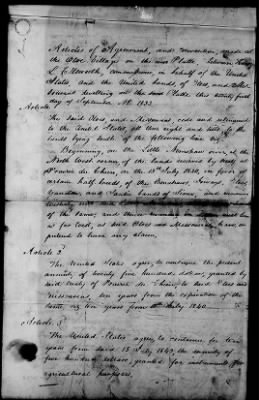 Articles of Agreement, and Convention, made at
the Otoe Village on the river Platte, between Henry
L. Ellsworth, commissioner, in behalf of the United
States, and the United bands of Otoes, and
Missourias dwelling on the said Platte this twenty first
day of September AD. 1833.
Article 1
The said Otoes, and Missourias, cede and relinquish
to the United States, all their right and title, to the
lands lying south of the following line viz.
Beginning, on the Little Nemohaw river, at the
North west corner of the lands reserved by treaty at
Prairie du Chien, on the 15th July 1830, in favor of
certain half breeds, of the Omahas, Ioways, Otoes,
Yancton, and Santie bands of Sioux, and
of the same, and thence
as far west, as said Otoes and Missourias have, or
pretend to have any claim.
Article 2d
The United States agree, to continue the present
annuity of twenty five hundred dollars, granted by
said treaty of Prairie du Chien, to said Otoes and
Missourias, ten years from the expiration of the
same viz ten years from 15th July 1840.
Article 3d
The United States agree to continue for ten
years from said 15 July 1840, the annuity of
five hundred dollars, granted for instruments for
agricultural purposes.